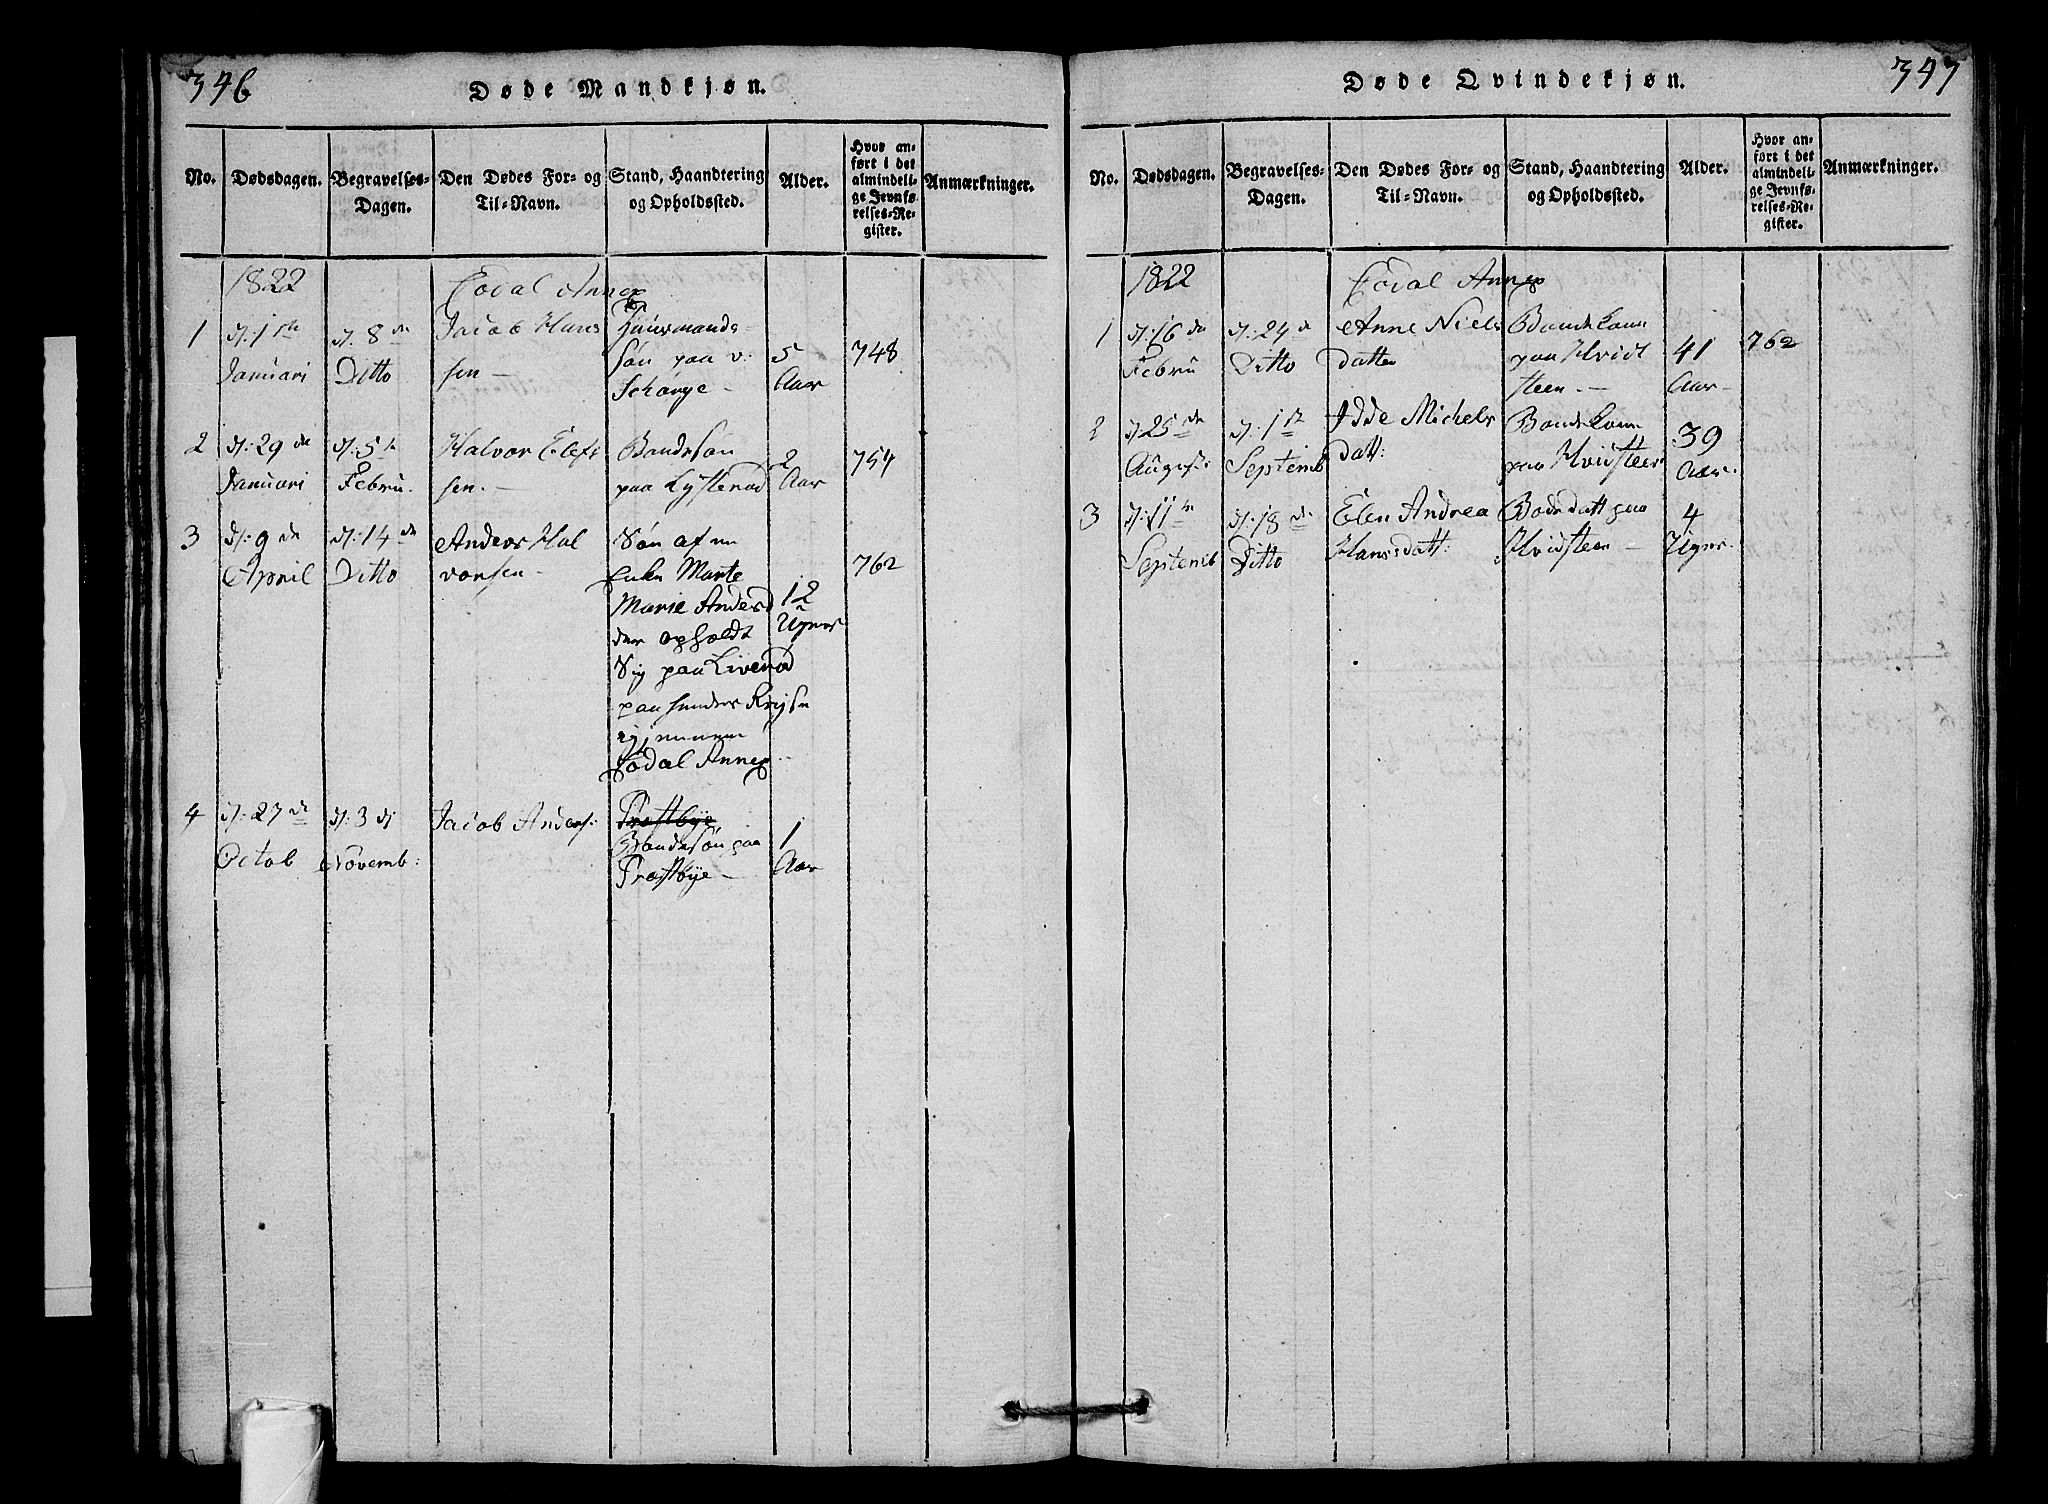 346
Døde Mandkjøn.
No.
Dødsdagen.
Begravelses-
Dagen.
Den Dødes For- og
Til-Navn.
Stand, Haandtering
og Opholdssted.
Alder.
Hvor an-
ført i det
almindeli-
ge Jevnfø-
relses-Re-
gister.
Anmærkninger.
1822
Fodal Annex
1
d: 1ste
Januari
d: 8de
Ditto
Jacob Hans
sen —
Huusmands-
Søn paa
Schange —
5
Aar
748
2
d: 29de
Januari
d: 5te
Febru.
Halvor Elefs
sen. —
Bondesøn
paa Lysterød
2
Aar
754
3
d: 9de
April
d: 14de
Ditto
Anders Hal
vorsen —
Søn af en
Enke Marte
Marie Andersd
der opholdt
Sig paa Liverød
paa
Fodal Annex
12
Uger
762
4
d: 27de
Octob
d: 3di
Novemb:
Jacob Anders:
Præstbye
Bondesøn paa
Præstbye —
1
Aar
347
Døde Qvindekjøn.
No.
Dødsdagen.
Begravelses-
Dagen.
Den Dødes For- og
Til-Navn.
Stand, Haandtering
og Opholdssted.
Alder.
Hvor an-
ført i det
almindeli-
ge Jevnfø-
relses-Re-
gister.
Anmærkninger.
1822
Fodal Annex
1
d: 16de
Febru
d: 24de
Ditto
Anne Niels
datter
Bondekone
paa Hvidt
steen. —
41
Aar
762
2
d: 25de
August:
d: 1ste
Septemb
Idde Michels
datt:
Bondekone
paa Hvidsteen
39
Aar.
3
d: 11te
Septemb
d: 18de
Ditto
Elen Andrea
Hansdatt:
Bondedatt paa
Hvidsteen —
4
Uger.